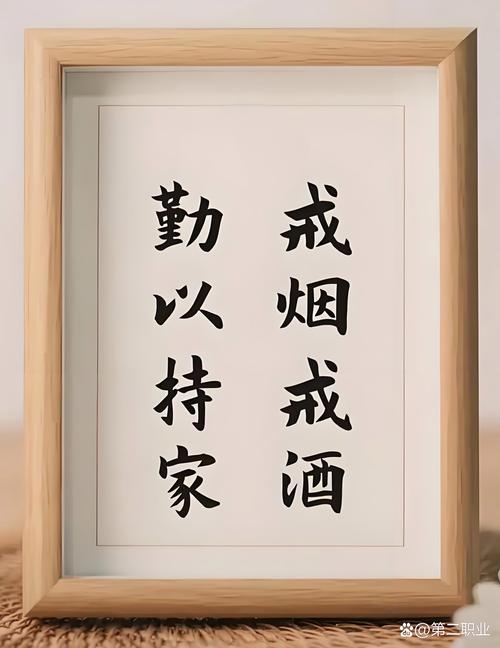 戒烟戒酒
勤以持家
@第二职业